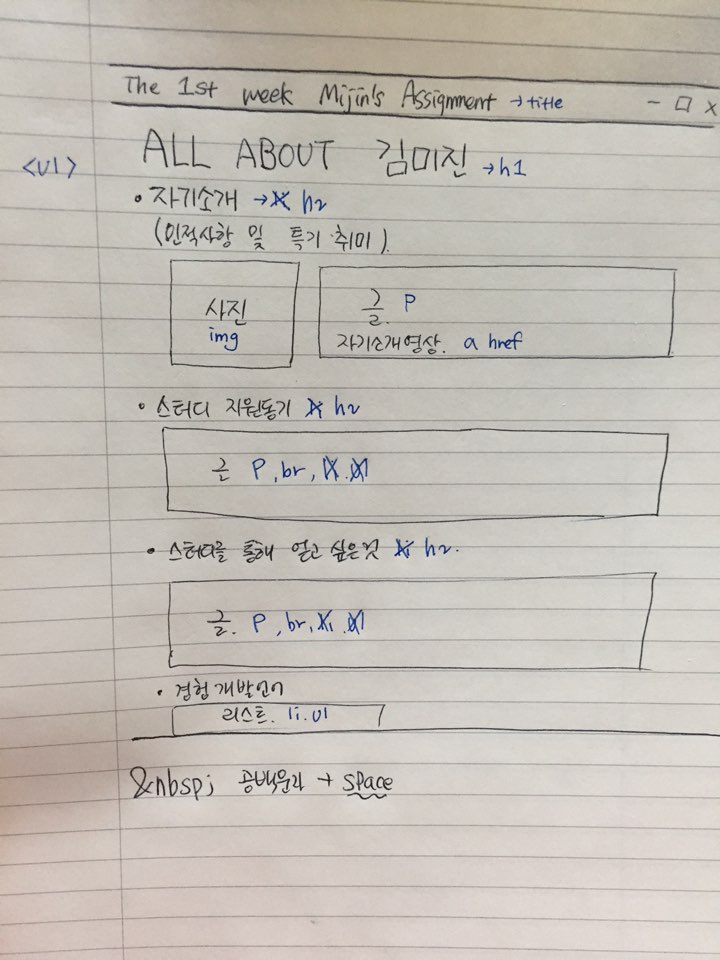 The 1st week Mijin's Assignment → title - □ X
<ul>
ALL ABOUT 김미진 → h1
• 자기소개 → h2
(인적사항 및 특기·취미)
사진
img
글 P
자기소개영상. a href
• 스터디 지원동기 h2
글 P, br,
• 스터디를 통해 얻고 싶은것 h2.
글. P, br,
• 경험 개발언어
리스트. li. ul
&nbsp; 공백문자 → space